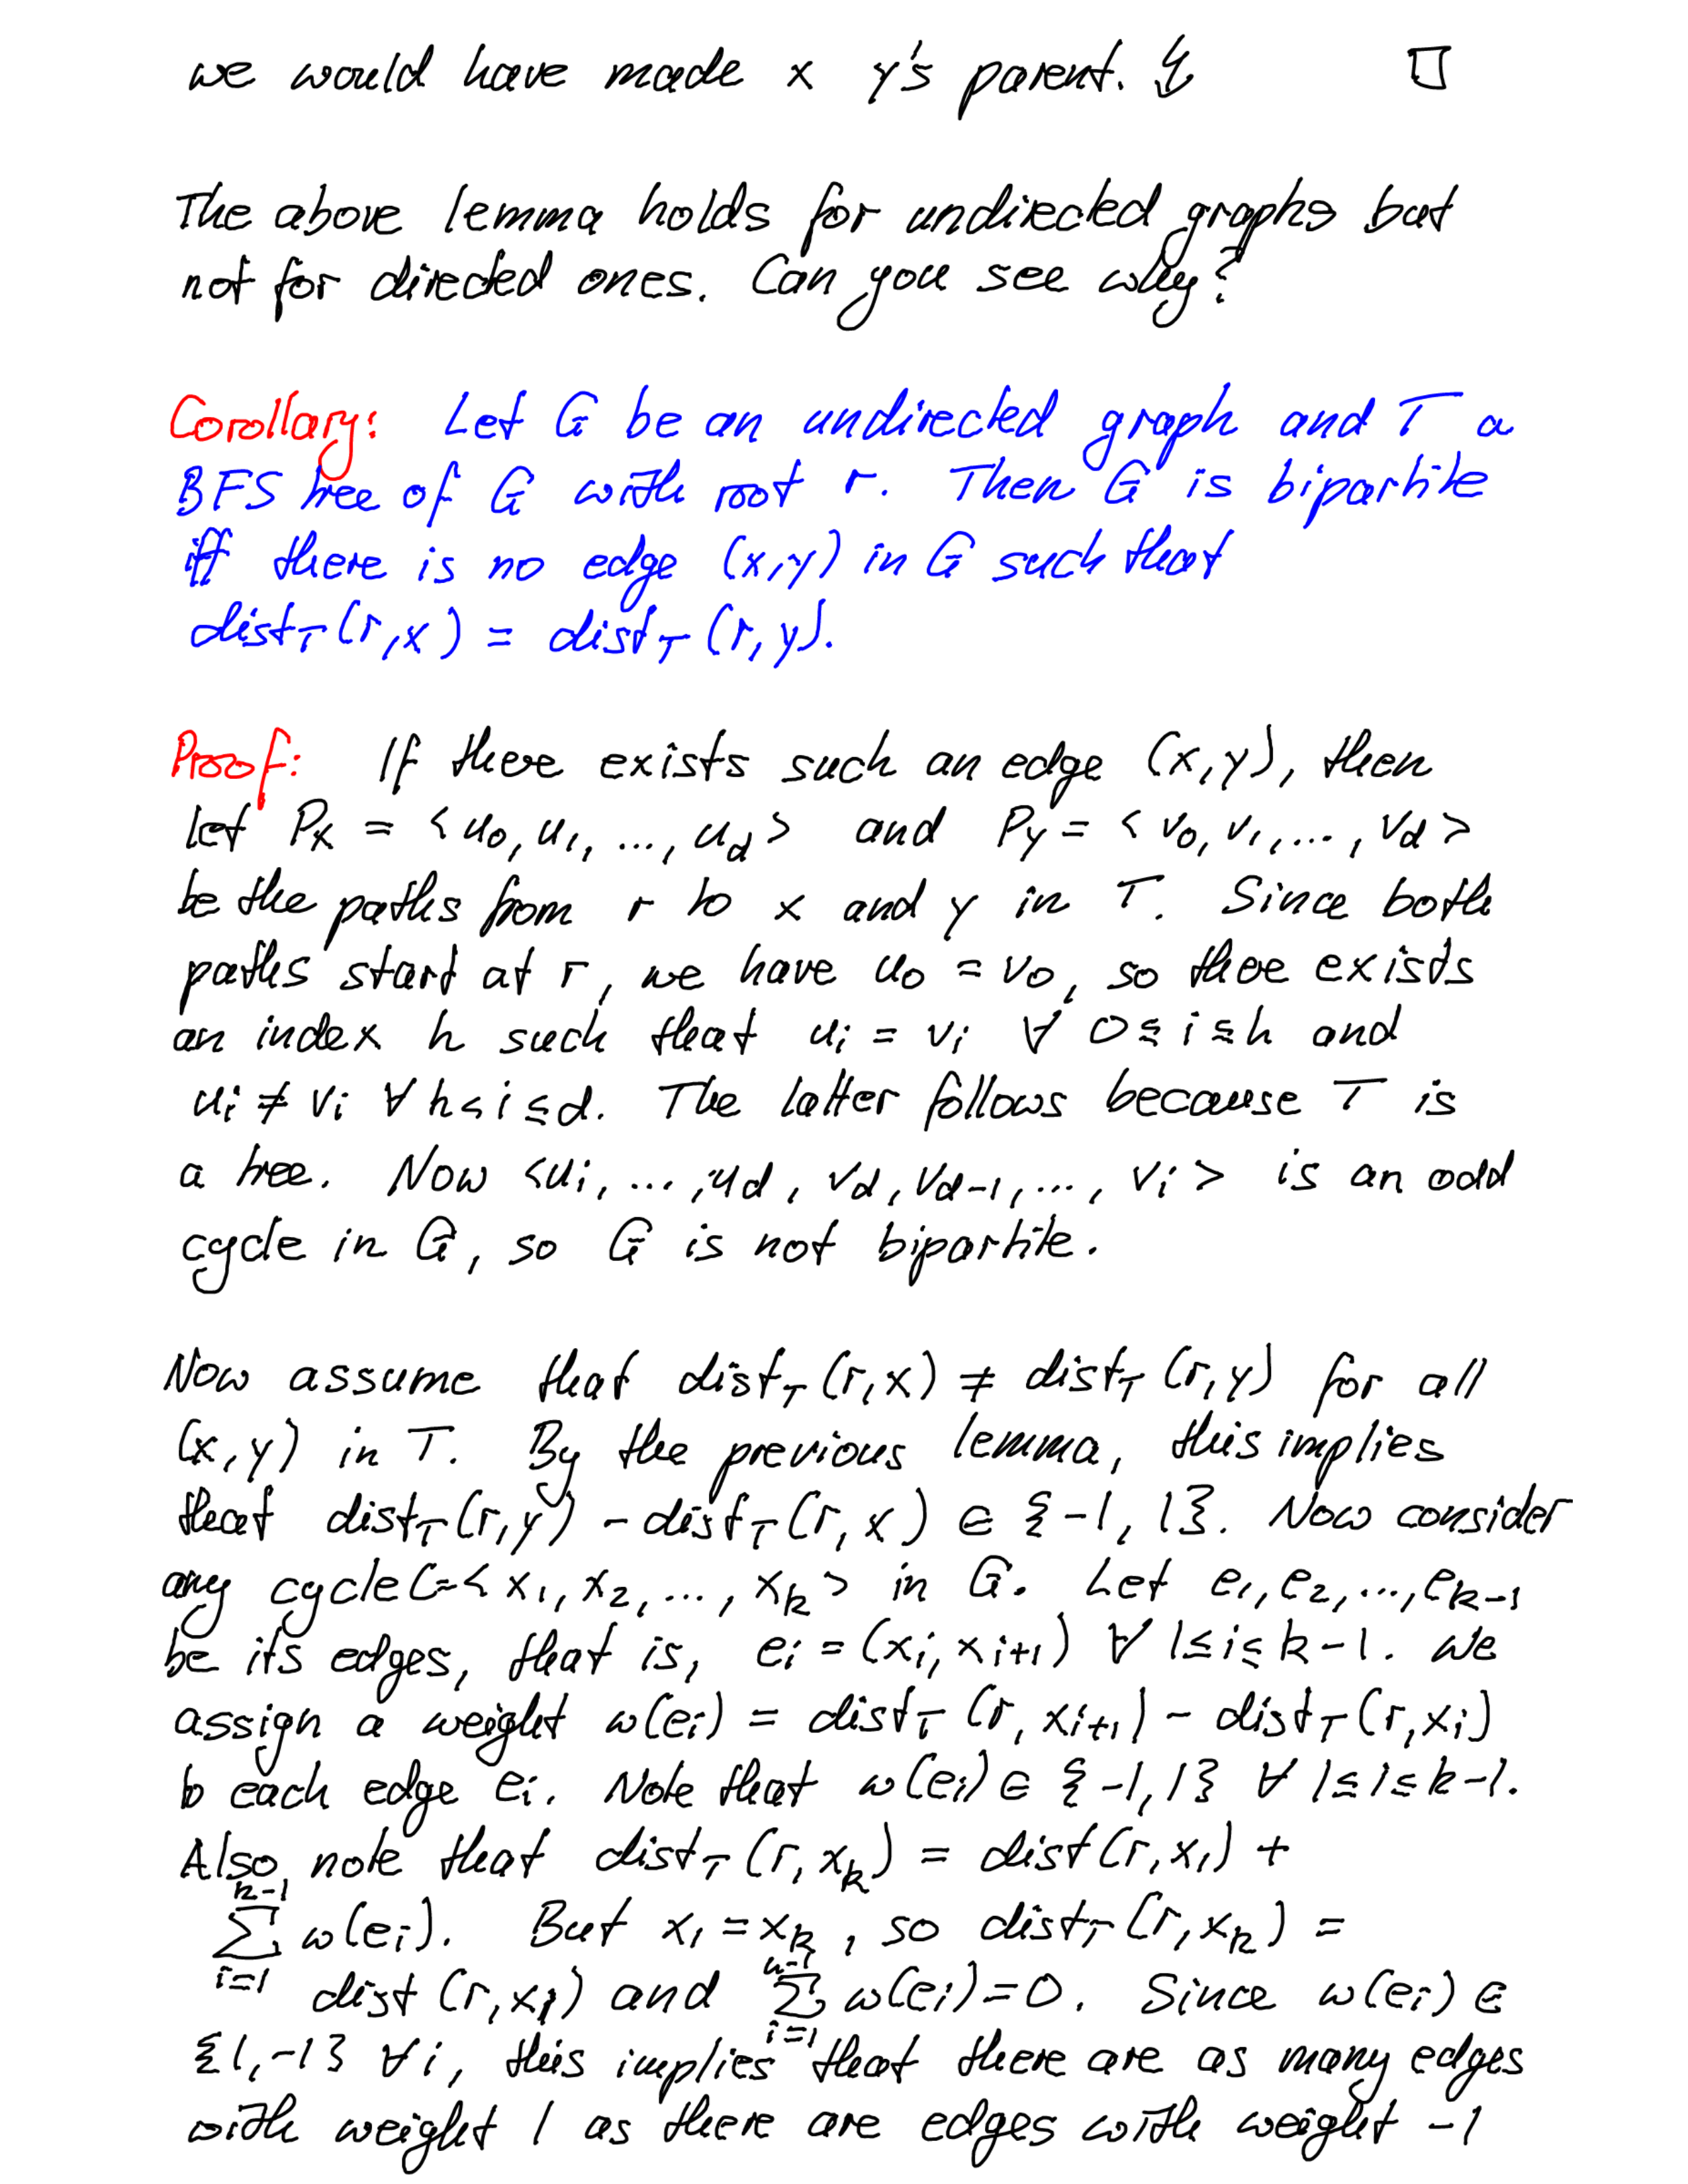 we would have made x y's parent. ↯ □
The above lemma holds for undirected graphs but
not for directed ones. Can you see why?
Corollary: Let G be an undirected graph and T a
BFS tree of G with root r. Then G is bipartite
iff there is no edge (x,y) in G such that
dist_T(r,x) = dist_T(r,y).
Proof: If there exists such an edge (x,y), then
let P_x = <u_0, u_1, ..., u_d> and P_y = <v_0, v_1, ..., v_d>
be the paths from r to x and y in T. Since both
paths start at r, we have u_0 = v_0, so there exists
an index h such that u_i = v_i ∀ 0 ≤ i ≤ h and
u_i ≠ v_i ∀ h < i ≤ d. The latter follows because T is
a tree. Now <u_i, ..., u_d, v_d, v_{d-1}, ..., v_i> is an odd
cycle in G, so G is not bipartite.
Now assume that dist_T(r,x) ≠ dist_T(r,y) for all
(x,y) in T. By the previous lemma, this implies
that dist_T(r,y) - dist_T(r,x) ∈ {-1, 1}. Now consider
any cycle C=<x_1, x_2, ..., x_k> in G. Let e_1, e_2, ..., e_{k-1}
be its edges, that is, e_i = (x_i, x_{i+1}) ∀ 1 ≤ i ≤ k-1. We
assign a weight w(e_i) = dist_T(r, x_{i+1}) - dist_T(r, x_i)
to each edge e_i. Note that w(e_i) ∈ {-1, 1} ∀ 1 ≤ 1 ≤ k-1.
Also note that dist_T(r, x_k) = dist(r, x_1) +
∑_{i=1}^{k-1} w(e_i). But x_1 = x_k, so dist_T(r, x_k) =
dist(r, x_1) and ∑_{i=1}^{k-1} w(e_i) = 0. Since w(e_i) ∈
{1, -1} ∀ i, this implies that there are as many edges
with weight 1 as there are edges with weight -1